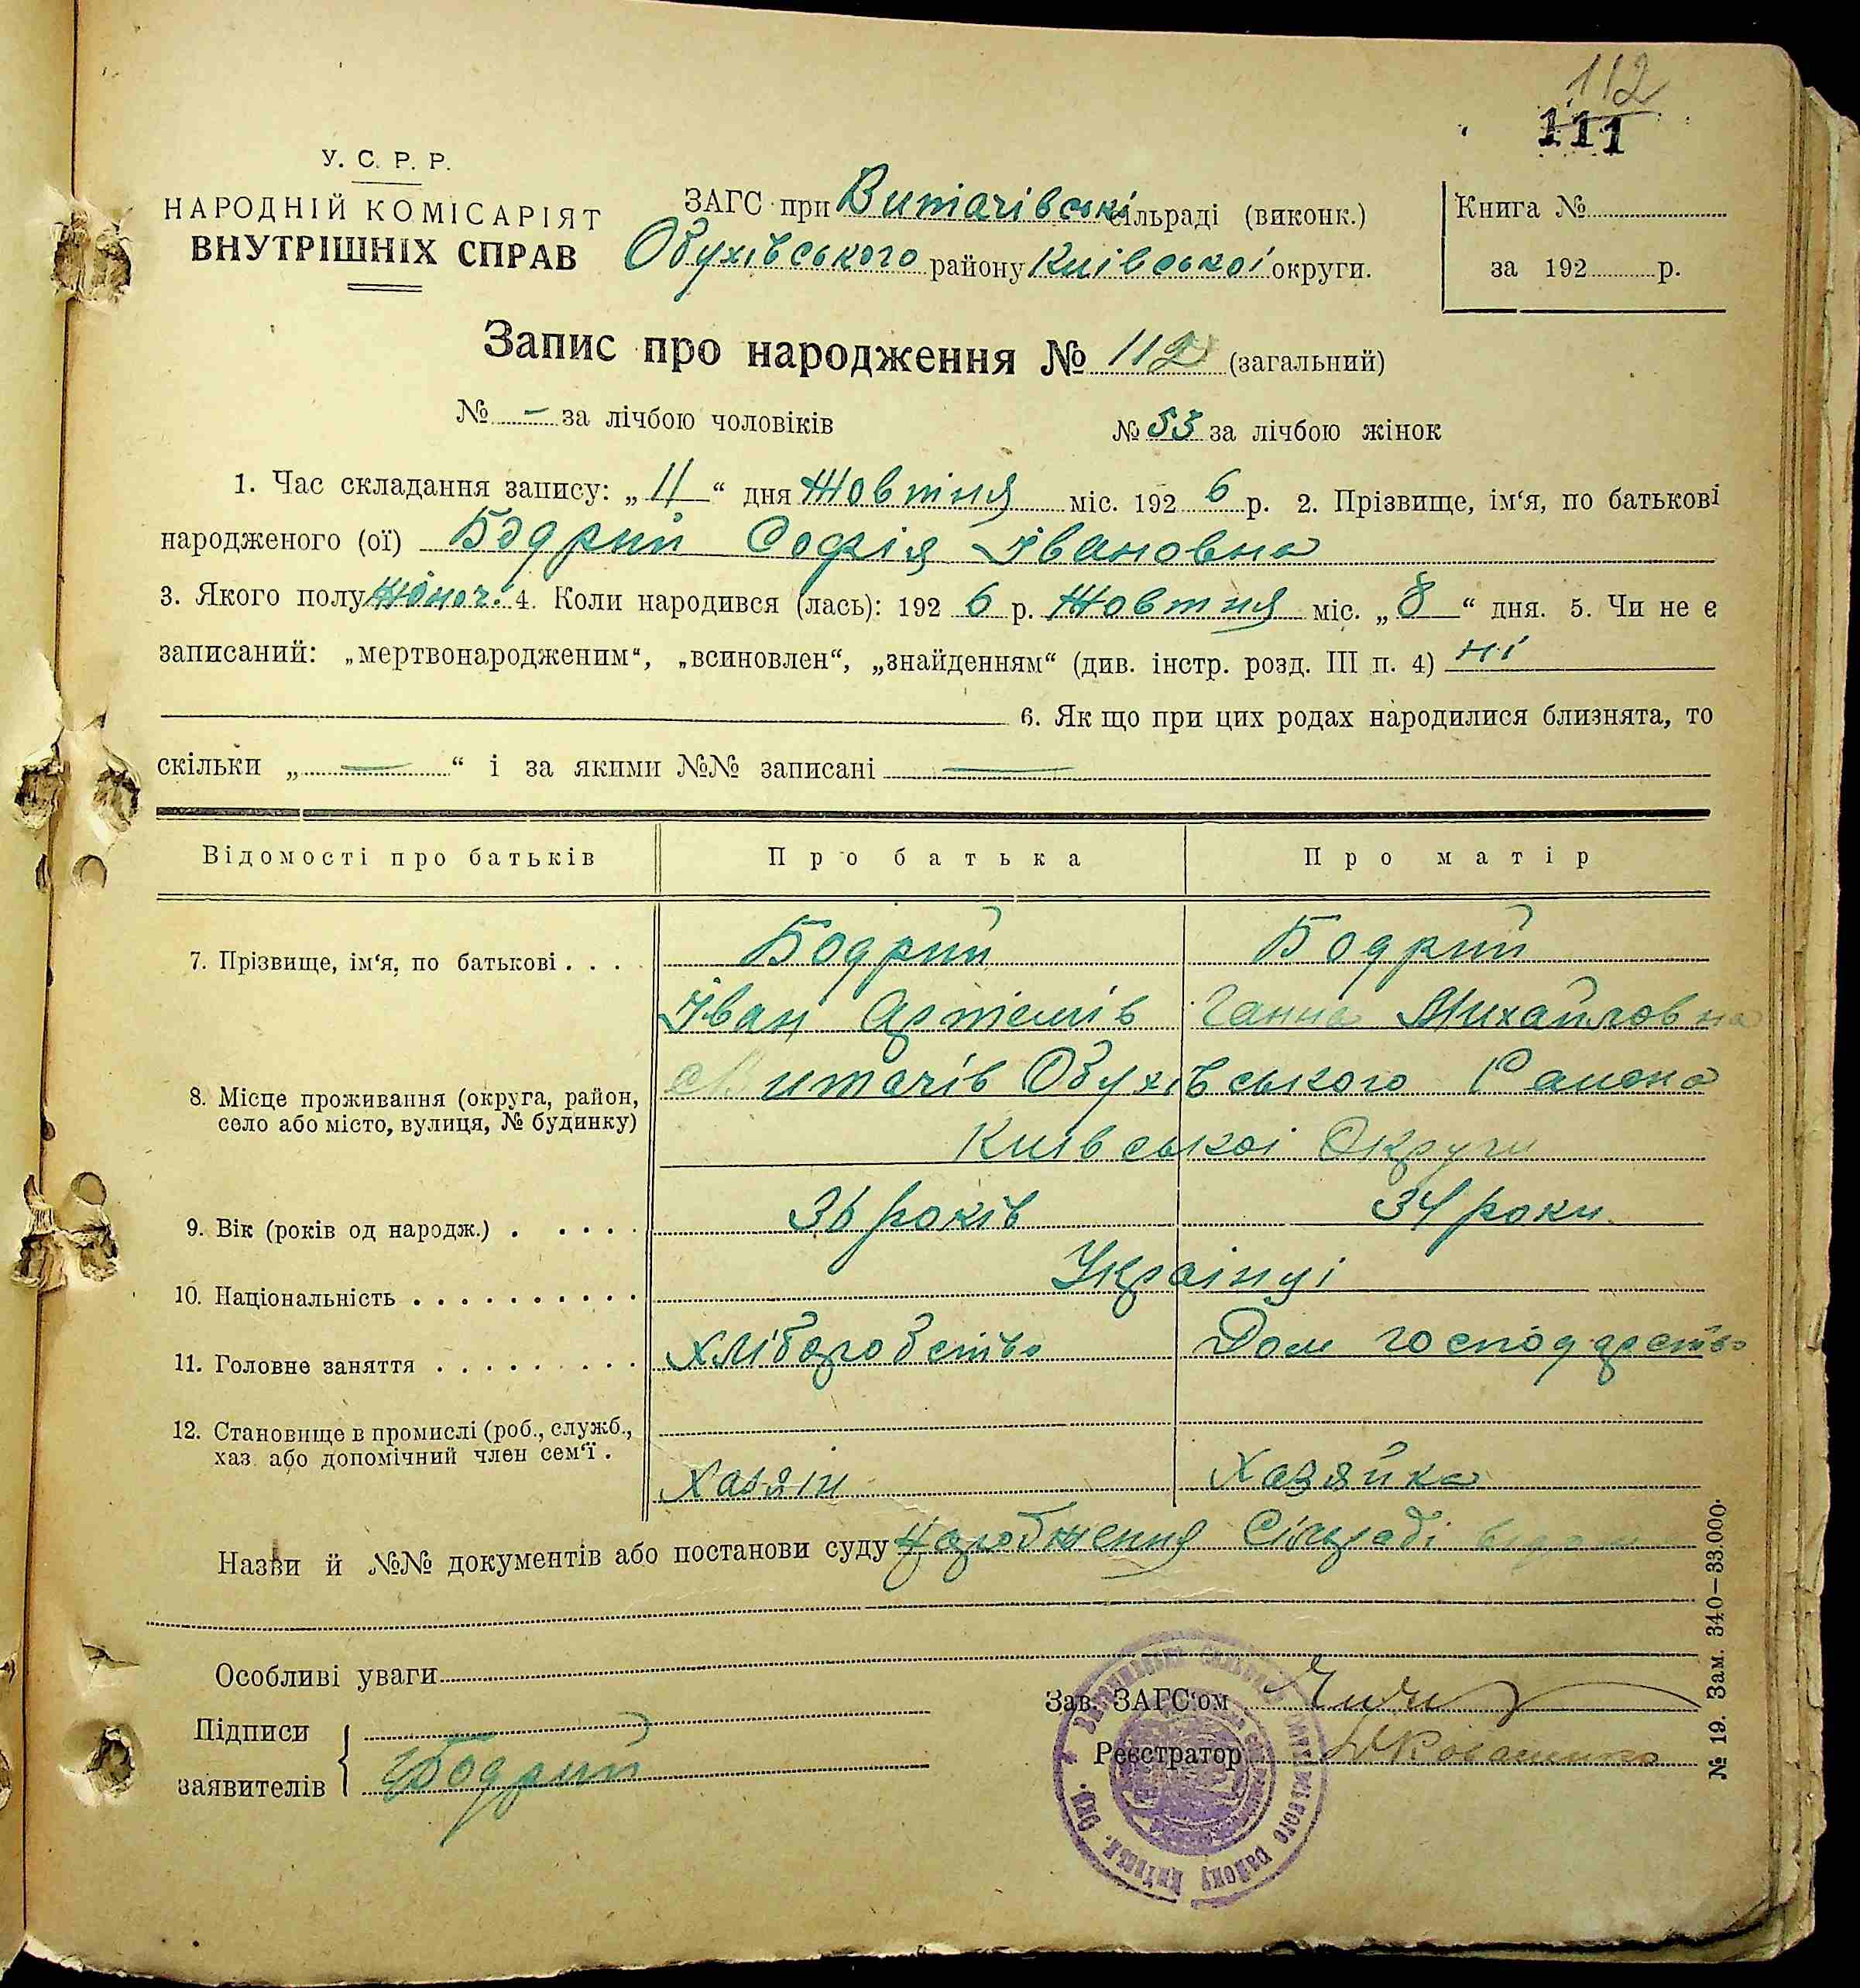 112
111
У. С. Р. Р.
НАРОДНІЙ КОМІСАРІЯТ
ВНУТРІШНІХ СПРАВ
ЗАГС при Витачівські сільраді (виконк.)
Обухівського району Київської округи.
Книга №
за 192 р.
Запис про народження № 112 (загальний)
№ — за лічбою чоловіків № 53 за лічбою жінок
1. Час складання запису: „11“ дня Жовтня міс. 192 6 р. 2. Прізвище, ім‘я, по батькові
народженого (ої) Бодрий Софія Івановна
3. Якого полу жіноч. 4. Коли народився (лась): 192 6 р. Жовтня міс. „8“ дня. 5. Чи не є
записаний: „мертвонародженим“, „всиновлен“, „знайденням“ (див. інстр. розд. III п. 4) ні
6. Як що при цих родах народилися близнята, то
скільки „ — “ і за якими №№ записані —
Відомості про батьків Про батька Про матір
7. Прізвище, ім‘я, по батькові . . . Бодрий Бодрий
Іван Артемів Ганна Михайловна
8. Місце проживання (округа, район, село або місто, вулиця, № будинку) с Витачів Обухівського Района
Київскоі Округи
9. Вік (років од народж.) . . . . . 36 років 34 роки
10. Національність . . . . . . . . . . Українці
11. Головне заняття . . . . . . . . . Хліборобство Дом господарство
12. Становище в промислі (роб., служб.,
хаз. або допомічний член сем‘ї .
Хазяін Хазяйка
Назви й №№ документів або постанови суду Народження Сільраді
Особливі уваги
Підписи
заявителів Бодрий
Зав. ЗАГС‘ом
Реєстратор
№ 19. Зам. 340—33.000.